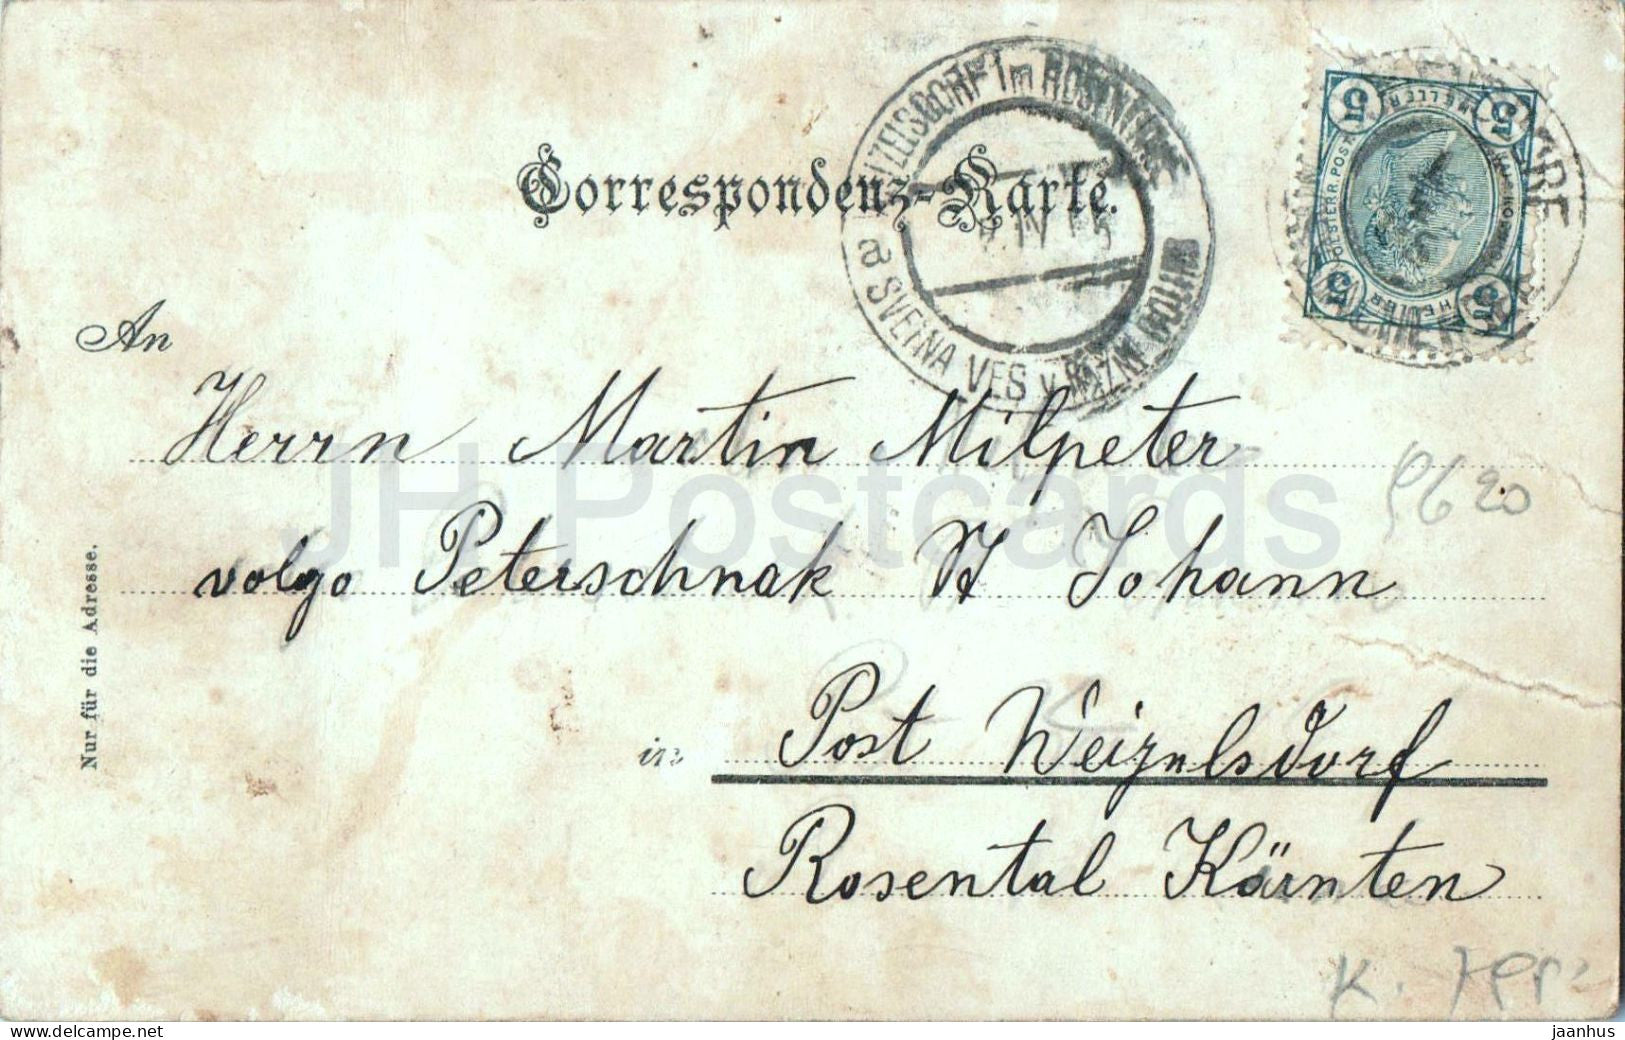 Correspondenz-Karte.
ITZELSDORF im ROSENTHALE
a SVEČNA VES v ROŽNI DOLINI
IV
5 HELLER 5
OESTERR. POST
5 HELLER 5
An
Herrn Martin Milpeter
volgo Peterschnak St Johann
in Post Weizelsdorf
Rosental Kärnten
Nur für die Adresse.
JH Postcards
www.delcampe.net
jaanhus